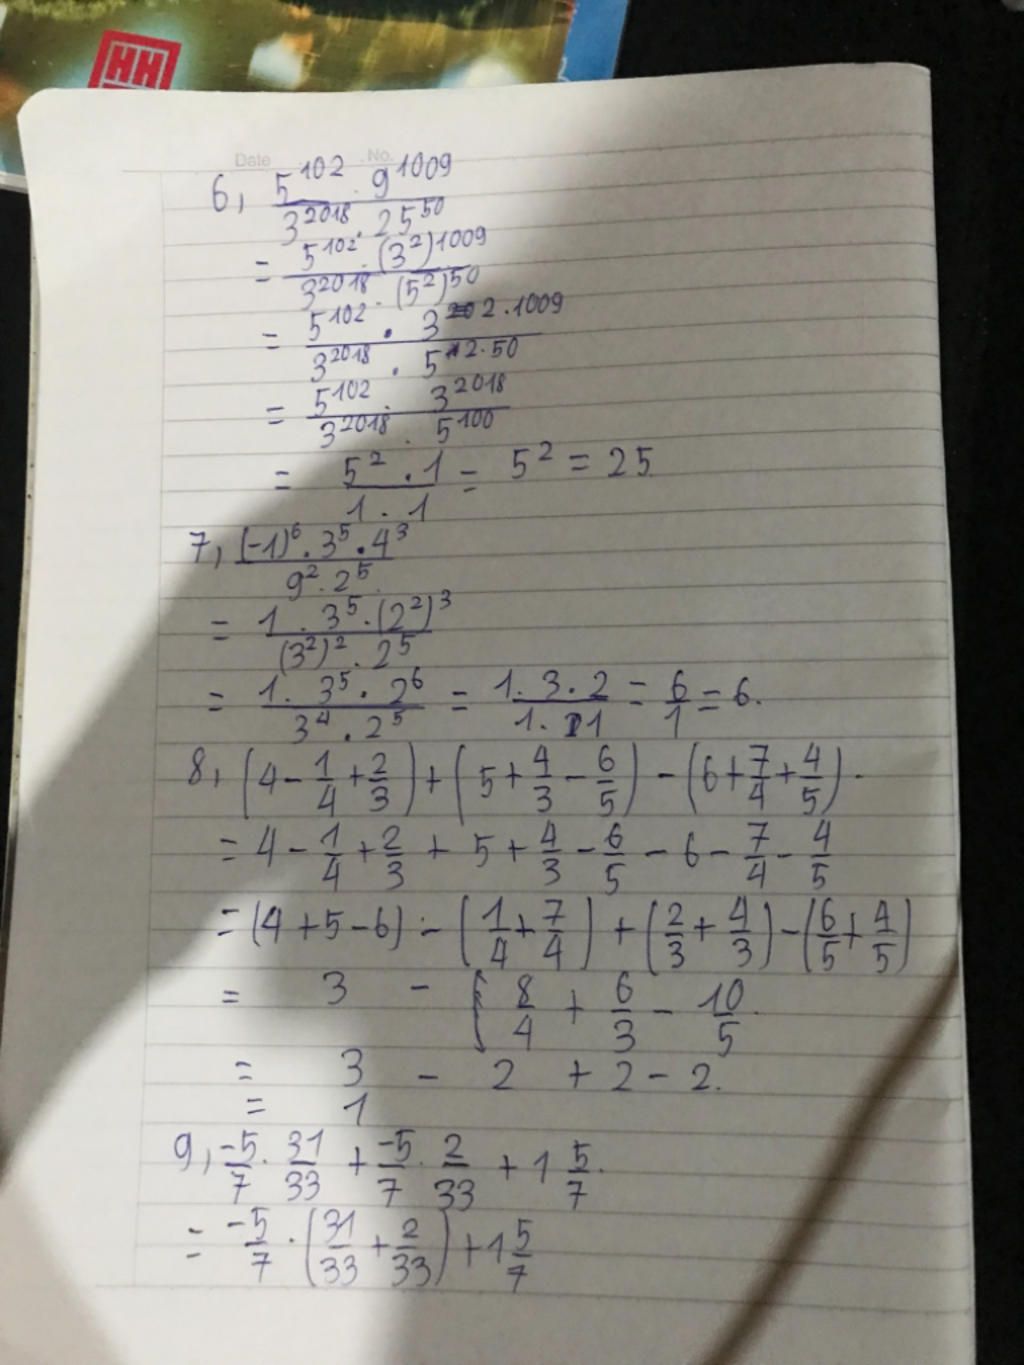 HH
Date No.
6, 5^102 . 9^1009 / 3^2018 . 25^50
= 5^102 . (3^2)^1009 / 3^2018 . (5^2)^50
= 5^102 . 3^2.1009 / 3^2018 . 5^2.50
= 5^102 . 3^2018 / 3^2018 . 5^100
= 5^2 . 1 / 1 . 1 = 5^2 = 25
7, (-1)^6 . 3^5 . 4^3 / 9^2 . 2^5
= 1 . 3^5 . (2^2)^3 / (3^2)^2 . 2^5
= 1 . 3^5 . 2^6 / 3^4 . 2^5 = 1 . 3 . 2 / 1 . 1 = 6/1 = 6.
8, (4 - 1/4 + 2/3) + (5 + 4/3 - 6/5) - (6 + 7/4 + 4/5).
= 4 - 1/4 + 2/3 + 5 + 4/3 - 6/5 - 6 - 7/4 - 4/5
= (4 + 5 - 6) - (1/4 + 7/4) + (2/3 + 4/3) - (6/5 + 4/5)
= 3 - 8/4 + 6/3 - 10/5.
= 3 - 2 + 2 - 2.
= 1
9, -5/7 . 31/33 + -5/7 . 2/33 + 1 5/7.
= -5/7 . (31/33 + 2/33) + 1 5/7